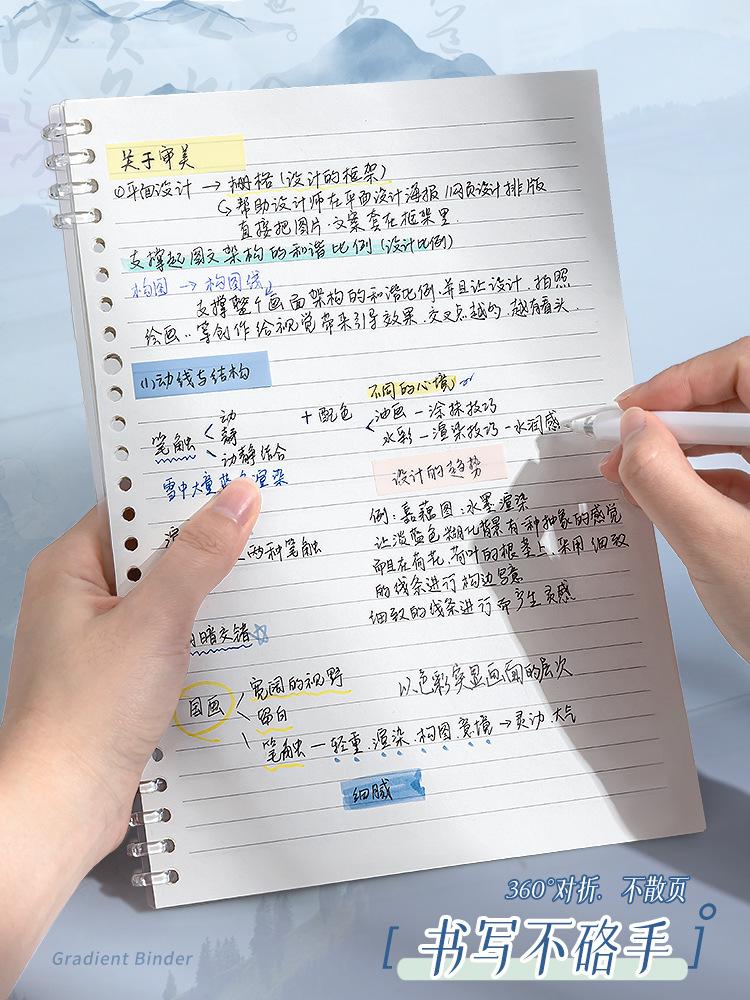 关于审美
①平面设计 → 栅格(设计的框架)
↳ 帮助设计师在平面设计海报 网页设计排版
直接把图片.文案套在框架里.
支撑起图文架构的和谐比例(设计比例)
构图 → 构图线
支撑整个画面架构的和谐比例.并且让设计.拍照
绘画..等创作给视觉带来引导效果.交叉点越多.越有看头.
(1)动线与结构
笔触 < 动
静
动静结合
+ 配色
不同的心境
油画 — 涂抹技巧
水彩 — 渲染技巧 — 水润感
雪中大量蓝色渲染
设计的趋势
两种笔触
例:嘉藕图:水墨渲染
让淡蓝色糊化背景有一种抽象的感觉
而且在荷花.荷叶的根茎上.采用细致
的线条进行构边
细致的线条进行 而产生灵感
明暗交错☆
国画 < 宽阔的视野
留白
笔触 — 轻重.渲染.构图.意境 → 灵动.大气
以色彩突显画面的层次
细腻
360°对折. 不散页
[书写不硌手]
Gradient Binder